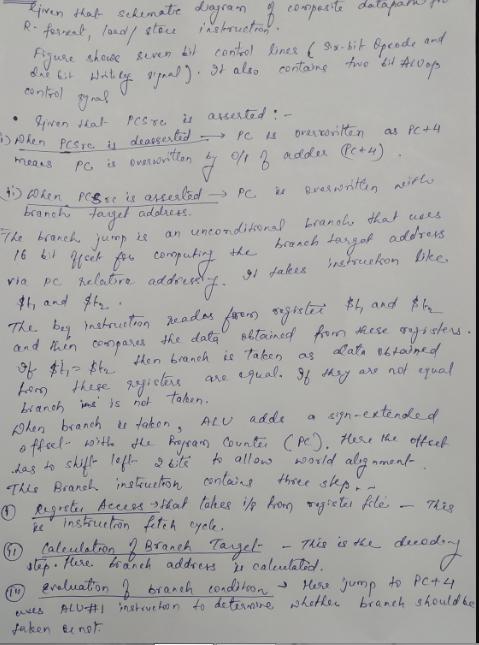 Given that schematic diagram of composite datapath for
R-format, load/store instruction.
Figure shows seven bit control lines (six-bit Opcode and
one bit signal). It also contains two bit ALUop
control signal
• Given that PCSrc is asserted :-
i) When PCSrc is deasserted → PC is overwritten as PC+4
means PC is overwritten by o/p of adder (PC+4).
ii) When PCSrc is asserted → PC is overwritten with
branch target address.
The branch jump is an unconditional branch that uses
16 bit offset for computing the branch target address
via PC relative addressing. It takes instruction like
$t1 and $t2.
The beq instruction reads from register $t1 and $t2
and then compares the data obtained from these registers.
If $t1 = $t2 then branch is taken as data obtained
from these registers are equal. If they are not equal
branch is not taken.
When branch is taken, ALU adds a sign-extended
offset with the Program Counter (PC). Here the offset
has to shift left 2 bits to allow world alignment.
This Branch instruction contains three step. -
Register Access → that takes i/p from register file - This
is instruction fetch cycle.
(ii) Calculation of Branch Target - This is the decoding
step. Here branch address is calculated.
(iii) evaluation of branch condition → Here jump to PC+4
uses ALU#1 instruction to determine whether branch should be
taken or not.